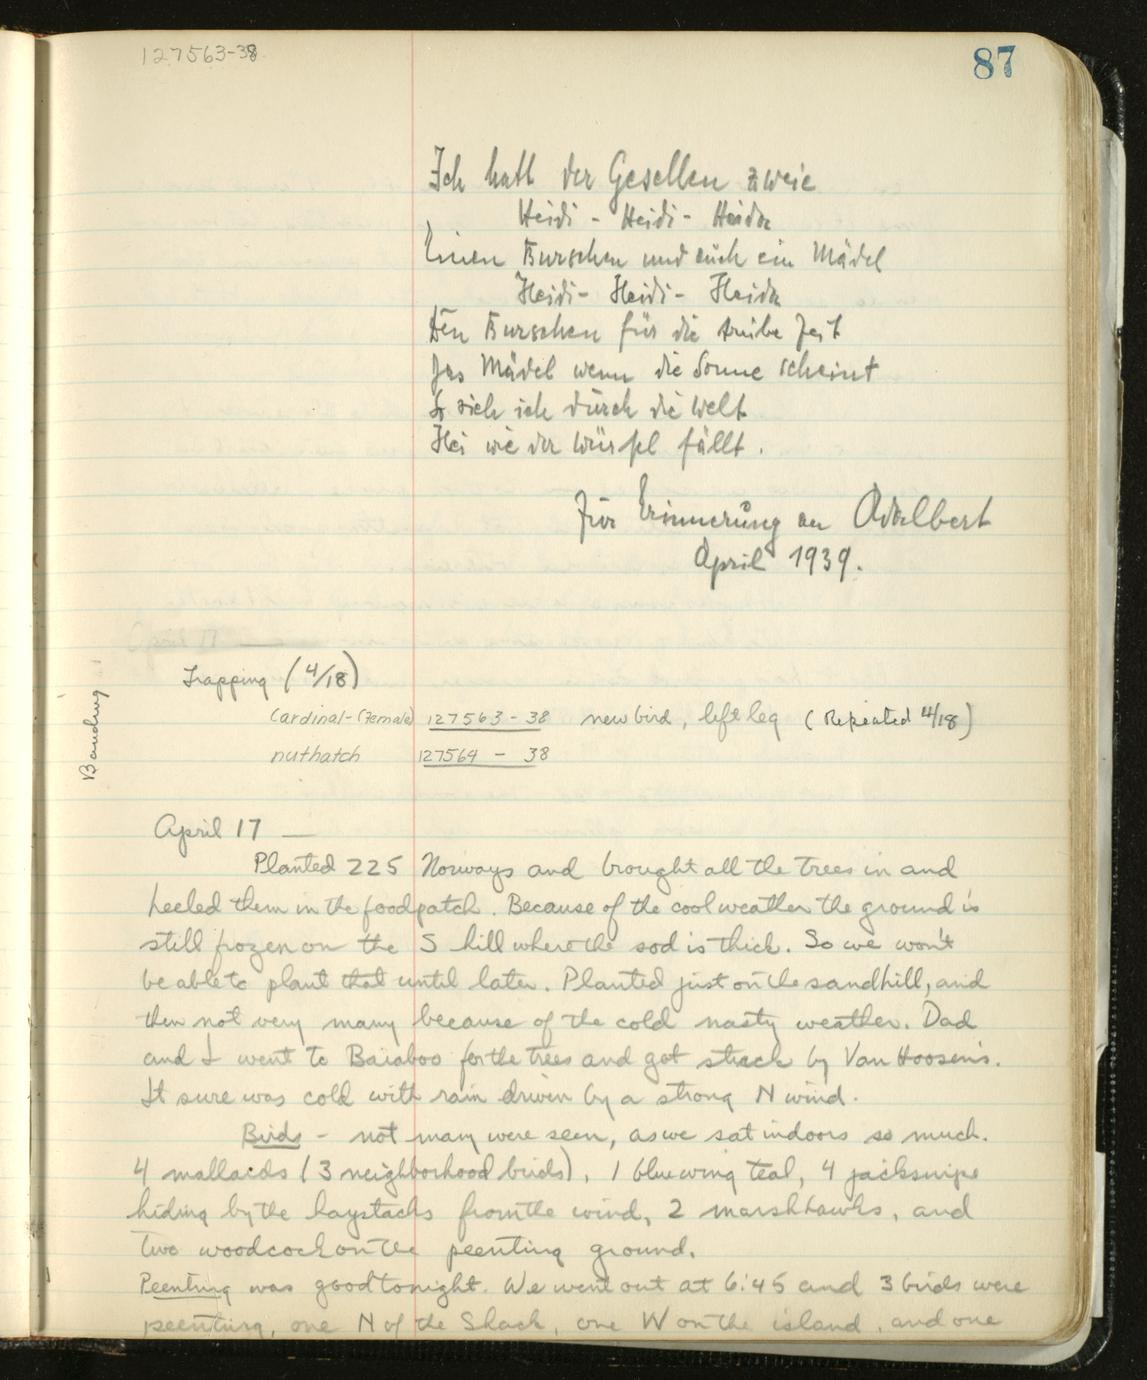 127563-38
87
Ich hatt der Gesellen zweie
Heidi - Heidi - Heida
Einen Burschen und auch ein Mädel
Heidi - Heidi - Heida
Den Burschen für die trübe Zeit
Das Mädel wenn die Sonne scheint
So zieh ich durch die Welt
Hei wie der Würfel fällt.
Zur Erinnerung an Adalbert
April 1939.
Trapping (4/18)
Banding
Cardinal-(Female) 127563-38 new bird, left leg (Repeated 4/18)
nuthatch 127564 - 38
April 17 —
Planted 225 Norways and brought all the trees in and
heeled them in the foodpatch. Because of the cool weather the ground is
still frozen on the S hill where the sod is thick. So we won't
be able to plant that until later. Planted just on the sandhill, and
then not very many because of the cold nasty weather. Dad
and I went to Baraboo for the trees and got stuck by Van Hoosen's.
It sure was cold with rain driven by a strong N wind.
Birds - not many were seen, as we sat indoors so much.
4 mallards (3 neighborhood birds), 1 bluewing teal, 4 jacksnipe
hiding by the haystacks from the wind, 2 marshhawks, and
two woodcock on the peenting ground.
Peenting was good tonight. We went out at 6:45 and 3 birds were
peenting, one N of the Shack, one W on the island, and one